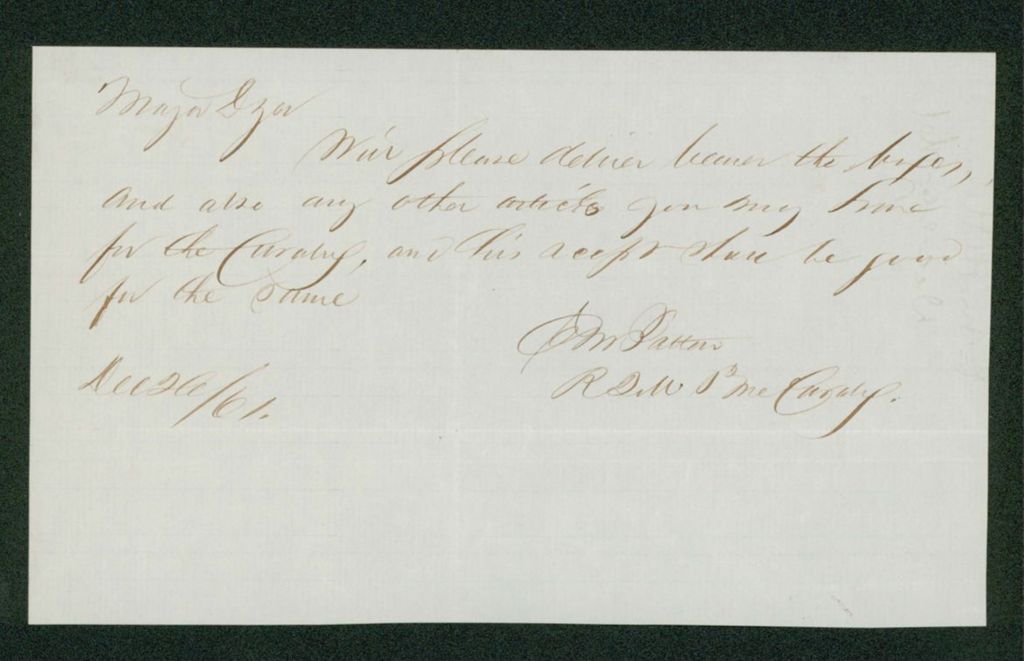 Major
Will please deliver bearer the
and also any other articls you may have
for the Cavalry, and his recept shall be good
for the same
Patten
R Q M 1st Me Cavalry.
Dec 26/61.